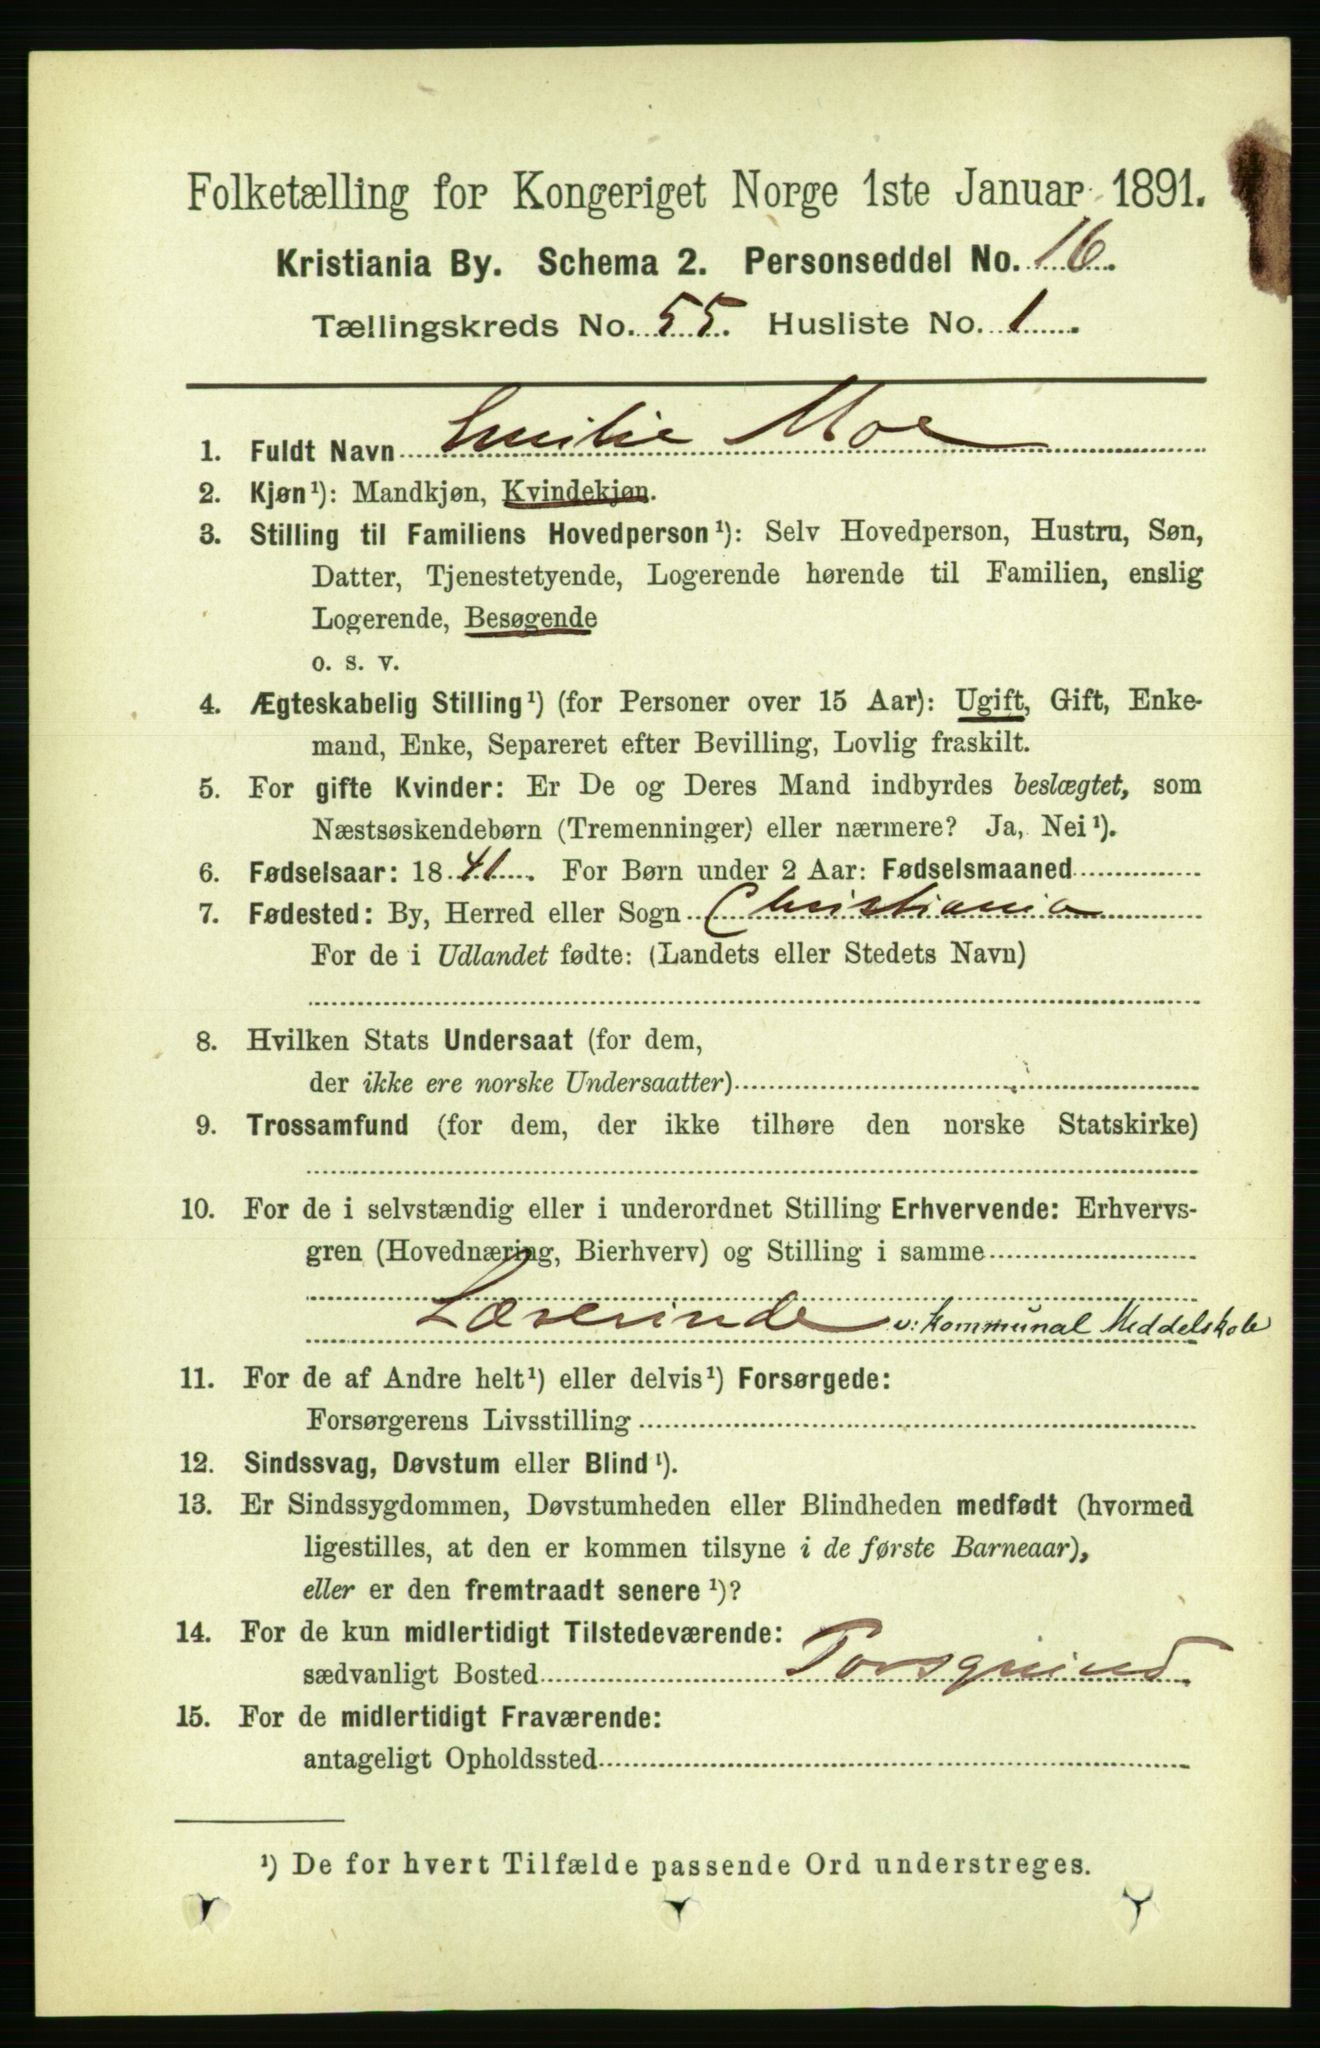 Folketælling for Kongeriget Norge 1ste Januar 1891.
Kristiania By. Schema 2. Personseddel No. 16.
Tællingskreds No. 55. Husliste No. 1.
1. Fuldt Navn Emilie Moe
2. Kjøn¹): Mandkjøn, Kvindekjøn.
3. Stilling til Familiens Hovedperson¹): Selv Hovedperson, Hustru, Søn,
Datter, Tjenestetyende, Logerende hørende til Familien, enslig
Logerende, Besøgende
o. s. v.
4. Ægteskabelig Stilling¹) (for Personer over 15 Aar): Ugift, Gift, Enke-
mand, Enke, Separeret efter Bevilling, Lovlig fraskilt.
5. For gifte Kvinder: Er De og Deres Mand indbyrdes beslægtet, som
Næstsøskendebørn (Tremenninger) eller nærmere? Ja, Nei¹).
6. Fødselsaar: 1841. For Børn under 2 Aar: Fødselsmaaned
7. Fødested: By, Herred eller Sogn Christiania
For de i Udlandet fødte: (Landets eller Stedets Navn)
8. Hvilken Stats Undersaat (for dem,
der ikke ere norske Undersaatter)
9. Trossamfund (for dem, der ikke tilhøre den norske Statskirke)
10. For de i selvstændig eller i underordnet Stilling Erhvervende: Erhvervs-
gren (Hovednæring, Bierhverv) og Stilling i samme
Lærerinde v: Kommunal Meddelskole
11. For de af Andre helt¹) eller delvis¹) Forsørgede:
Forsørgerens Livsstilling
12. Sindssvag, Døvstum eller Blind¹).
13. Er Sindssygdommen, Døvstumheden eller Blindheden medfødt (hvormed
ligestilles, at den er kommen tilsyne i de første Barneaar),
eller er den fremtraadt senere¹)?
14. For de kun midlertidigt Tilstedeværende:
sædvanligt Bosted Porsgrund
15. For de midlertidigt Fraværende:
antageligt Opholdssted
¹) De for hvert Tilfælde passende Ord understreges.